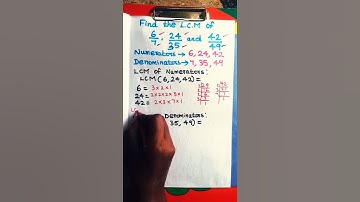 Find the L.C.M of
6/7, 24/35 and 42/49
Numerators → 6, 24, 42
Denominators → 7, 35, 49
LCM of Numerators:
LCM (6, 24, 42) =
6 = 3×2×1
24 = 2×2×2×3×1
42 = 2×3×7×1
Denominators:
35, 49) =